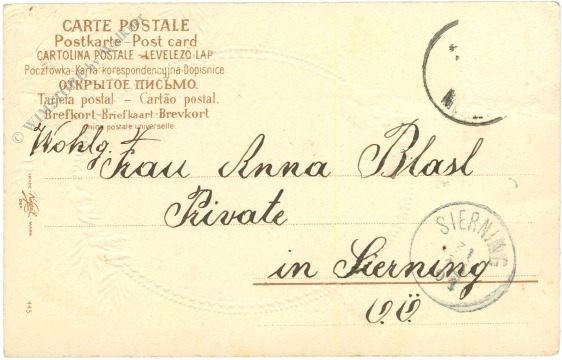 CARTE POSTALE
Postkarte - Post card
CARTOLINA POSTALE - LEVELEZŐ LAP
Pocztówka - Karta korespondencyjna - Dopisnice
ОТКРЫТОЕ ПИСЬМО.
Tarjeta postal - Cartão postal.
Brefkort - Briefkaart - Brevkort
Union postale universelle.
Wohlg.
Frau Anna Blasl
Private
in Sierning
O.Ö.
SIERNING
445